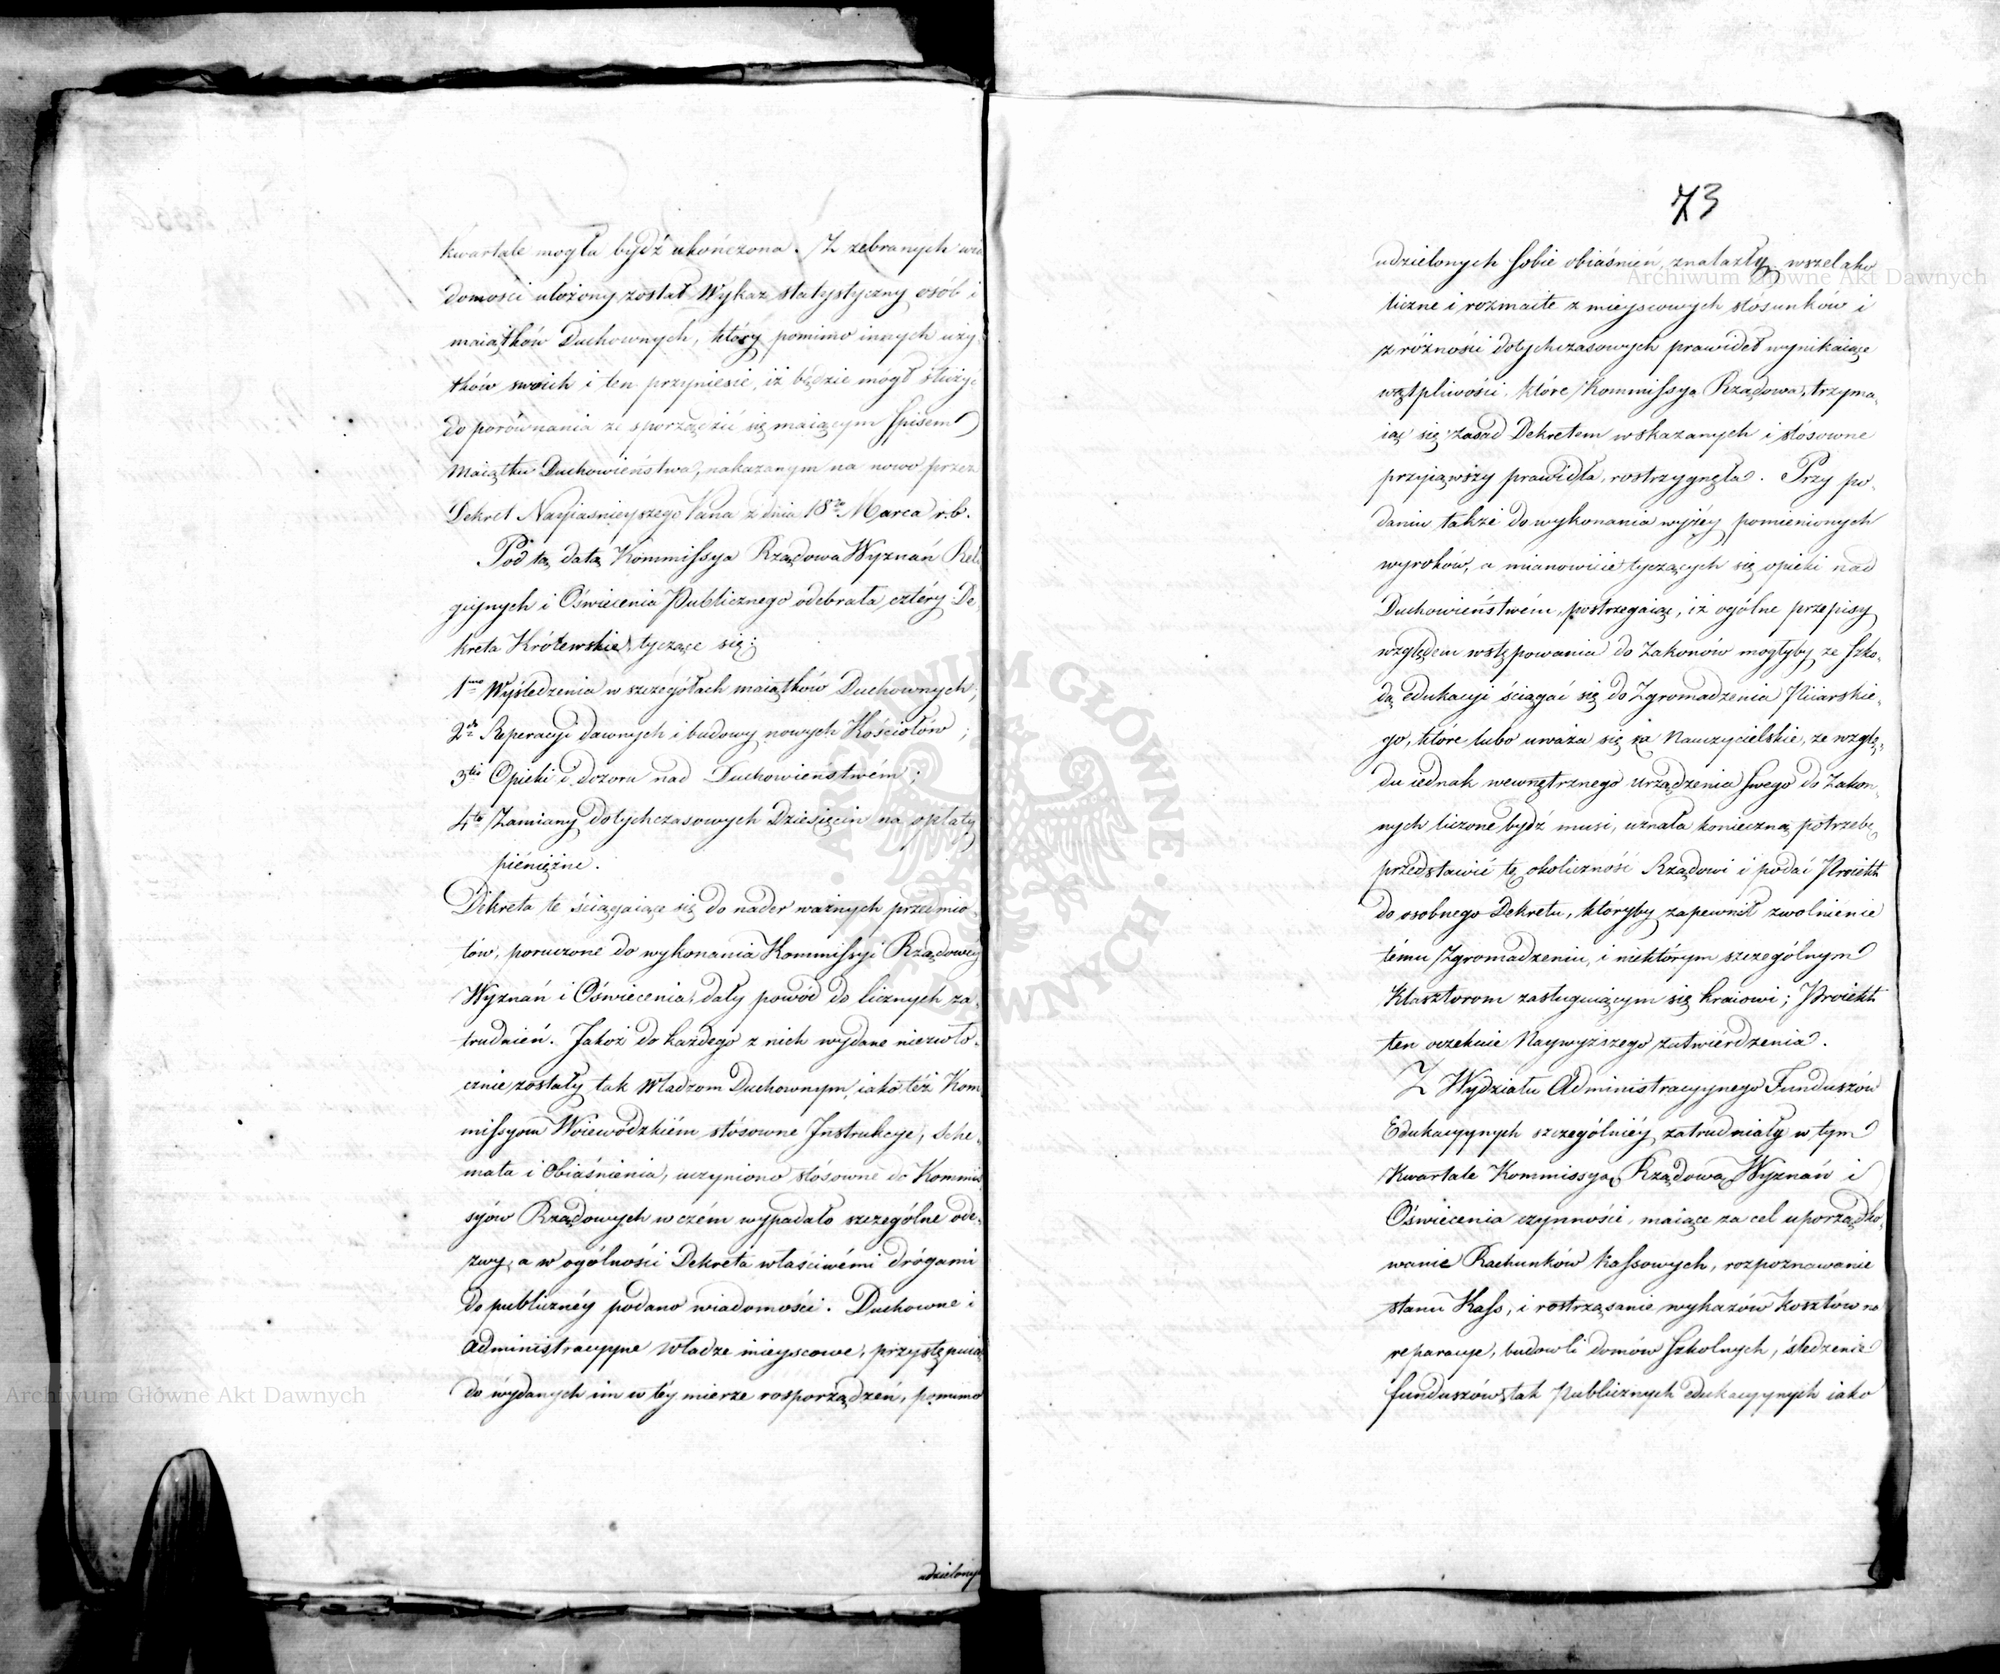 kwartale mogła bydź ukończona. Z zebranych wia
domości ułożony został Wykaz statystyczny osób i
maiątków Duchownych, który pomimo innych uży-
tków swoich i ten przyniesie, iż będzie mógł służyć
do porównania ze sporządzić się maiącym Spisem
Maiątku Duchowieństwa, nakazanym na nowo przez
Dekret Nayiaśnieyszego Pana z dnia 18go Marca r.b.
Pod tą datą Kommissya Rządowa Wyznań Reli
giynych i Oświecenia Publicznego odebrała cztéry De-
kreta Królewskie tyczące się:
1mo Wyśledzenia w szczegółach maiątków Duchownych;
2do Reperacyi dawnych i budowy nowych Kościołów;
3tio Opieki i dozoru nad Duchowieństwém;
4to Zamiany dotychczasowych Dziesięcin na opłaty
piéniężne.
Dekreta te ściągaiące się do nader ważnych przedmio-
tów, poruczone do wykonania Kommissyi Rządowey
Wyznań i Oświecenia, dały powód do licznych za-
trudnień. Jakoż do każdego z nich wydane niezwło-
cznie zostały tak Władzom Duchownym, iako téż Kom
missyom Woiewódzkiém stósowne Instrukcye, Sche-
mata i Obiaśnienia, uczyniono stósowne do Kommis
syów Rządowych w czém wypadało szczególne ode-
zwy, a w ogólności Dekreta właściwémi drógami
do publicznéy podano wiadomości. Duchowne i
Administracyyne Władze mieyscowe, przystępuiąc
do wydanych im w téy mierze rosporządzeń, pomimo
udzielonych
73
udzielonych sobie obiaśnień, znalazły wszelako
liczne i rozmaite z mieyscowych stósunków i
z różności dotychczasowych prawideł wynikaiące
wątpliwości, które Kommissya Rządowa, trzyma-
iąc się zasad Dekretem wskazanych i stósowne
przyiąwszy prawidła, rostrzygnęła. Przy po-
daniu także do wykonania wyżéy pomienionych
wyroków, a mianowicie tyczących się opieki nad
Duchowieństwém, postrzegaiąc, iż ogólne przepisy
względem wstępowania do Zakonów mogłyby ze szko-
dą edukacyi ściągać się do Zgromadzenia Piiarskie-
go, które lubo uważa się za Nauczycielskie, ze wzglę-
du iednak wewnętrznego urządzenia swego do Zakon-
nych liczone bydź musi, uznała konieczną potrzebę
przedstawić tę okoliczność Rządowi i podać Proiekt
do osobnego Dekretu, któryby zapewnił zwolnienie
tému Zgromadzeniu, i niektórym szczególnym
Klasztorom zasługuiącym się kraiowi; Proiekt
ten oczekuie Naywyższego zatwierdzenia.
Z Wydziału Administracyynego Funduszów
Edukacyynych szczególniéy zatrudniały w tym
Kwartale Kommissyą Rządową Wyznań i
Oświecenia czynności, maiące za cel uporządko-
wanie Rachunków Kassowych, rozpoznawanie
stanu Kass, i rostrząsanie wykazów kosztów na
reparacye, budowli domów szkolnych, śledzenie
funduszów tak Publicznych edukacyynych iako
Archiwum Główne Akt Dawnych
Archiwum Główne Akt Dawnych
ARCHIWUM GŁÓWNE AKT DAWNYCH